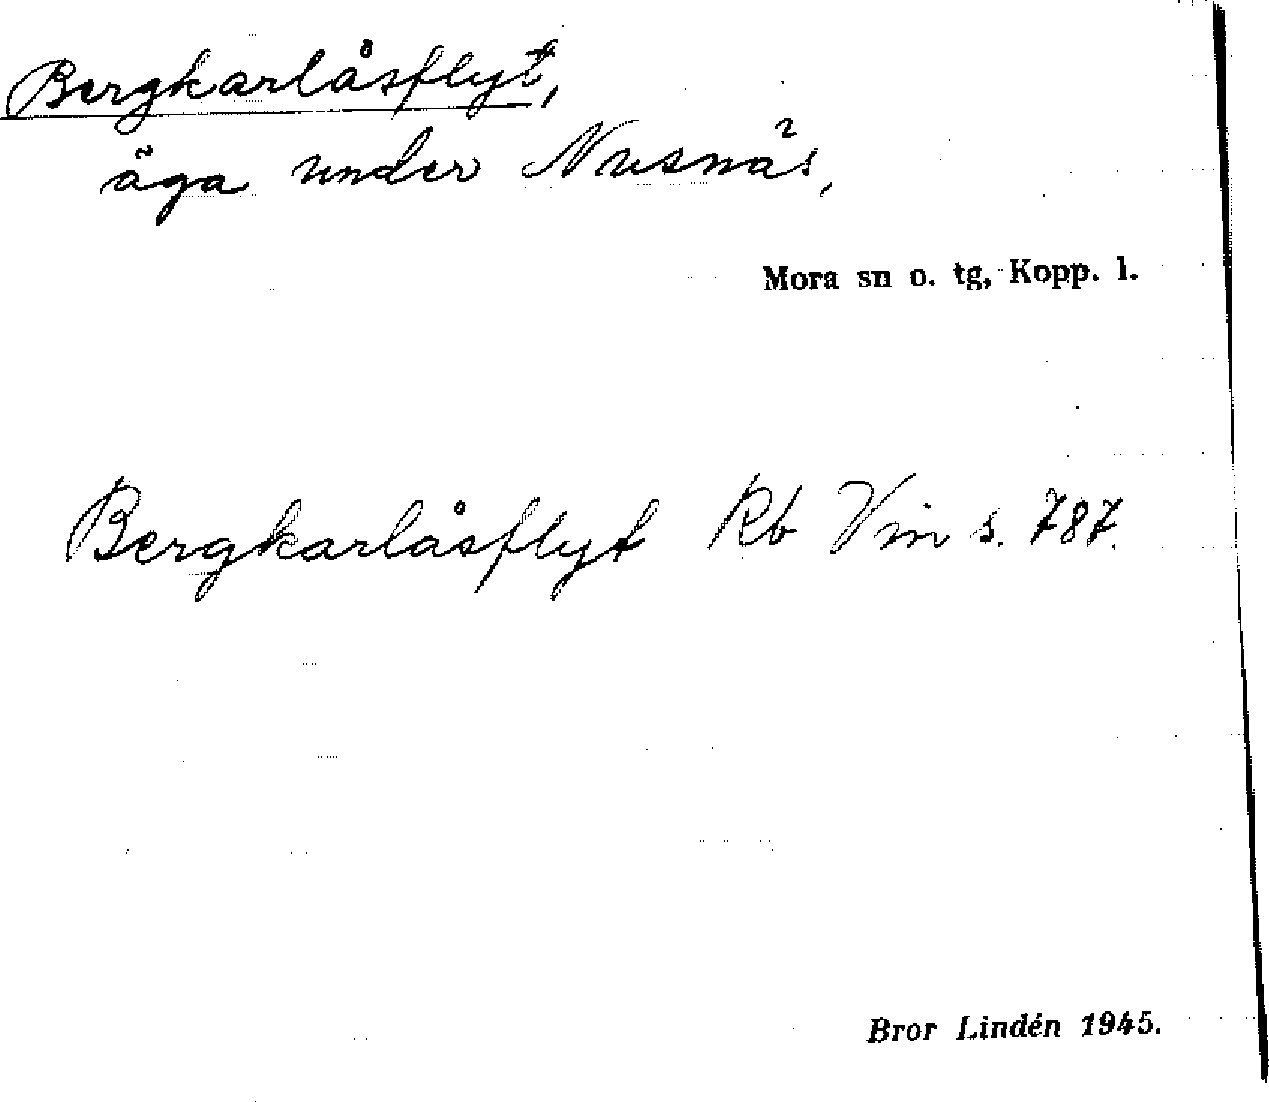 Bergkarlåsflyt,
äga under Nusnäs,
Mora sn o. tg, Kopp. l.
Bergkarlåsflyt Rb Vin s. 787.
Bror Lindén 1945.